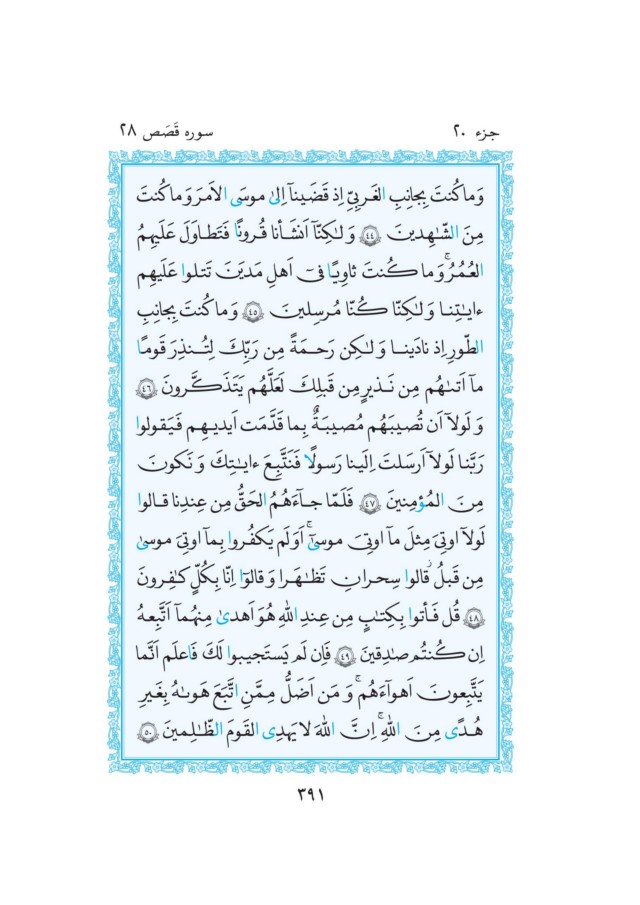 جزء ۲۰
سوره قَصَص ۲۸
وَما كُنتَ بِجانِبِ الغَربِيِّ اِذ قَضَينآ اِلىٰ موسَى الاَمرَ وَما كُنتَ
مِنَ الشّٰهِدينَ ﴿٤٤﴾ وَلٰكِنّآ اَنشَأنا قُرونًا فَتَطاوَلَ عَلَيهِمُ
العُمُرُ ۚ وَما كُنتَ ثاوِيًا فى اَهلِ مَديَنَ تَتلوا عَلَيهِم
ءايٰتِنا وَلٰكِنّا كُنّا مُرسِلينَ ﴿٤٥﴾ وَما كُنتَ بِجانِبِ
الطّورِ اِذ نادَينا وَلٰكِن رَحمَةً مِن رَبِّكَ لِتُنذِرَ قَومًا
مآ اَتىٰهُم مِن نَذيرٍ مِن قَبلِكَ لَعَلَّهُم يَتَذَكَّرونَ ﴿٤٦﴾
وَلَولآ اَن تُصيبَهُم مُصيبَةٌ بِما قَدَّمَت اَيديهِم فَيَقولوا
رَبَّنا لَولآ اَرسَلتَ اِلَينا رَسولًا فَنَتَّبِعَ ءايٰتِكَ وَنَكونَ
مِنَ المُؤمِنينَ ﴿٤٧﴾ فَلَمّا جآءَهُمُ الحَقُّ مِن عِندِنا قالوا
لَولآ اوتِىَ مِثلَ مآ اوتِىَ موسىٰٓ ۚ اَوَلَم يَكفُروا بِمآ اوتِىَ موسىٰ
مِن قَبلُ ۖ قالوا سِحرانِ تَظٰهَرا وَقالوٓا اِنّا بِكُلٍّ كٰفِرونَ
﴿٤٨﴾ قُل فَأتوا بِكِتٰبٍ مِن عِندِ اللّٰهِ هُوَ اَهدىٰ مِنهُمآ اَتَّبِعهُ
اِن كُنتُم صٰدِقينَ ﴿٤٩﴾ فَاِن لَم يَستَجيبوا لَكَ فَاعلَم اَنَّما
يَتَّبِعونَ اَهوآءَهُم ۚ وَمَن اَضَلُّ مِمَّنِ اتَّبَعَ هَوىٰهُ بِغَيرِ
هُدًى مِنَ اللّٰهِ ۚ اِنَّ اللّٰهَ لا يَهدِى القَومَ الظّٰلِمينَ ﴿٥٠﴾
۳۹۱